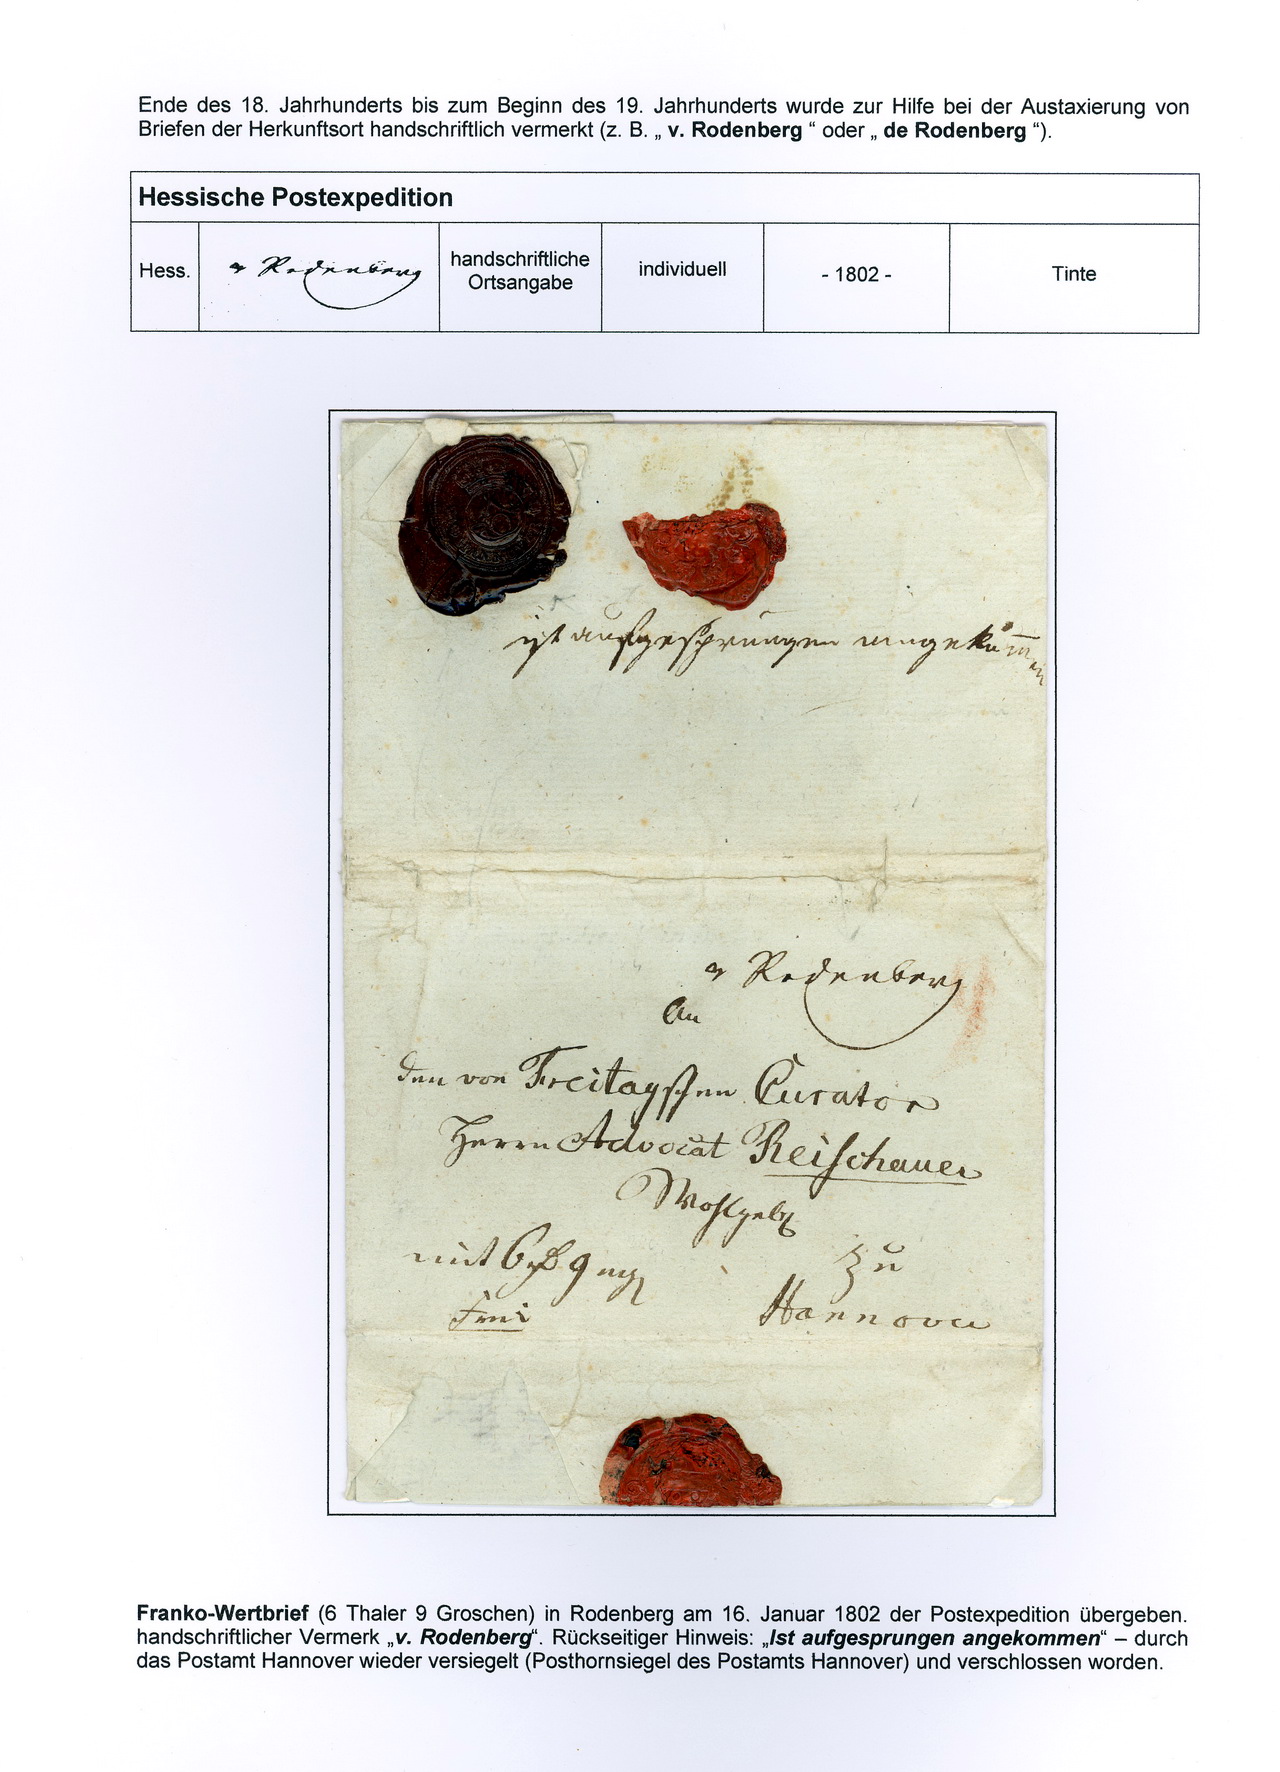 Ende des 18. Jahrhunderts bis zum Beginn des 19. Jahrhunderts wurde zur Hilfe bei der Austaxierung von
Briefen der Herkunftsort handschriftlich vermerkt (z. B. „ v. Rodenberg “ oder „ de Rodenberg “).
Hessische Postexpedition
Hess.
v Rodenberg
handschriftliche
Ortsangabe
individuell
- 1802 -
Tinte
ist aufgesprungen angekom̅en
v Rodenberg
An
den von Freitagschen Curator
Herrn Advocat Reischauer
Wohlgeb
zu
mit 6 9
Hannover
Frei
Franko-Wertbrief (6 Thaler 9 Groschen) in Rodenberg am 16. Januar 1802 der Postexpedition übergeben.
handschriftlicher Vermerk „v. Rodenberg“. Rückseitiger Hinweis: „Ist aufgesprungen angekommen“ – durch
das Postamt Hannover wieder versiegelt (Posthornsiegel des Postamts Hannover) und verschlossen worden.